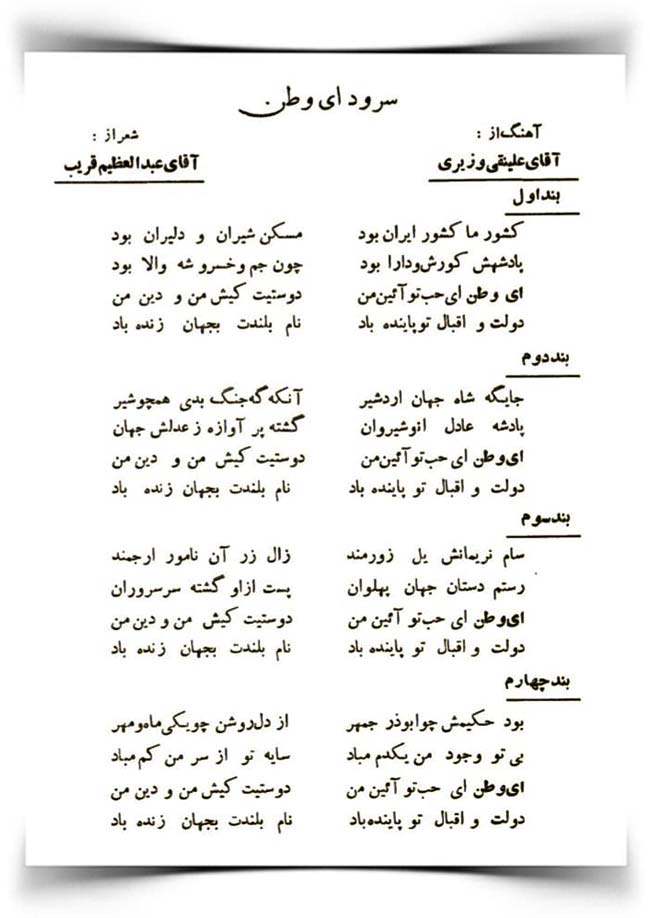 سرود ای وطن
آهنگ از : شعر از :
آقای علینقی وزیری آقای عبدالعظیم قریب
بند اول
کشور ما کشور ایران بود مسکن شیران و دلیران بود
پادشهش کورش و دارا بود چون جم و خسرو شه والا بود
ای وطن ای حب تو آئین من دوستیت کیش من و دین من
دولت و اقبال تو پاینده باد نام بلندت بجهان زنده باد
بند دوم
جایگه شاه جهان اردشیر آنکه گه جنگ بدی همچو شیر
پادشه عادل انوشیروان گشته پر آوازه ز عدلش جهان
ای وطن ای حب تو آئین من دوستیت کیش من و دین من
دولت و اقبال تو پاینده باد نام بلندت بجهان زنده باد
بند سوم
سام نریمانش یل زورمند زال زر آن نامور ارجمند
رستم دستان جهان پهلوان پست ازاو گشته سرسروران
ای وطن ای حب تو آئین من دوستیت کیش من و دین من
دولت و اقبال تو پاینده باد نام بلندت بجهان زنده باد
بند چهارم
بود حکیمش چو ابوذر جمهر از دل روشن چو یکی ماه و مهر
بی تو وجود من یکدم مباد سایه تو از سر من کم مباد
ای وطن ای حب تو آئین من دوستیت کیش من و دین من
دولت و اقبال تو پاینده باد نام بلندت بجهان زنده باد